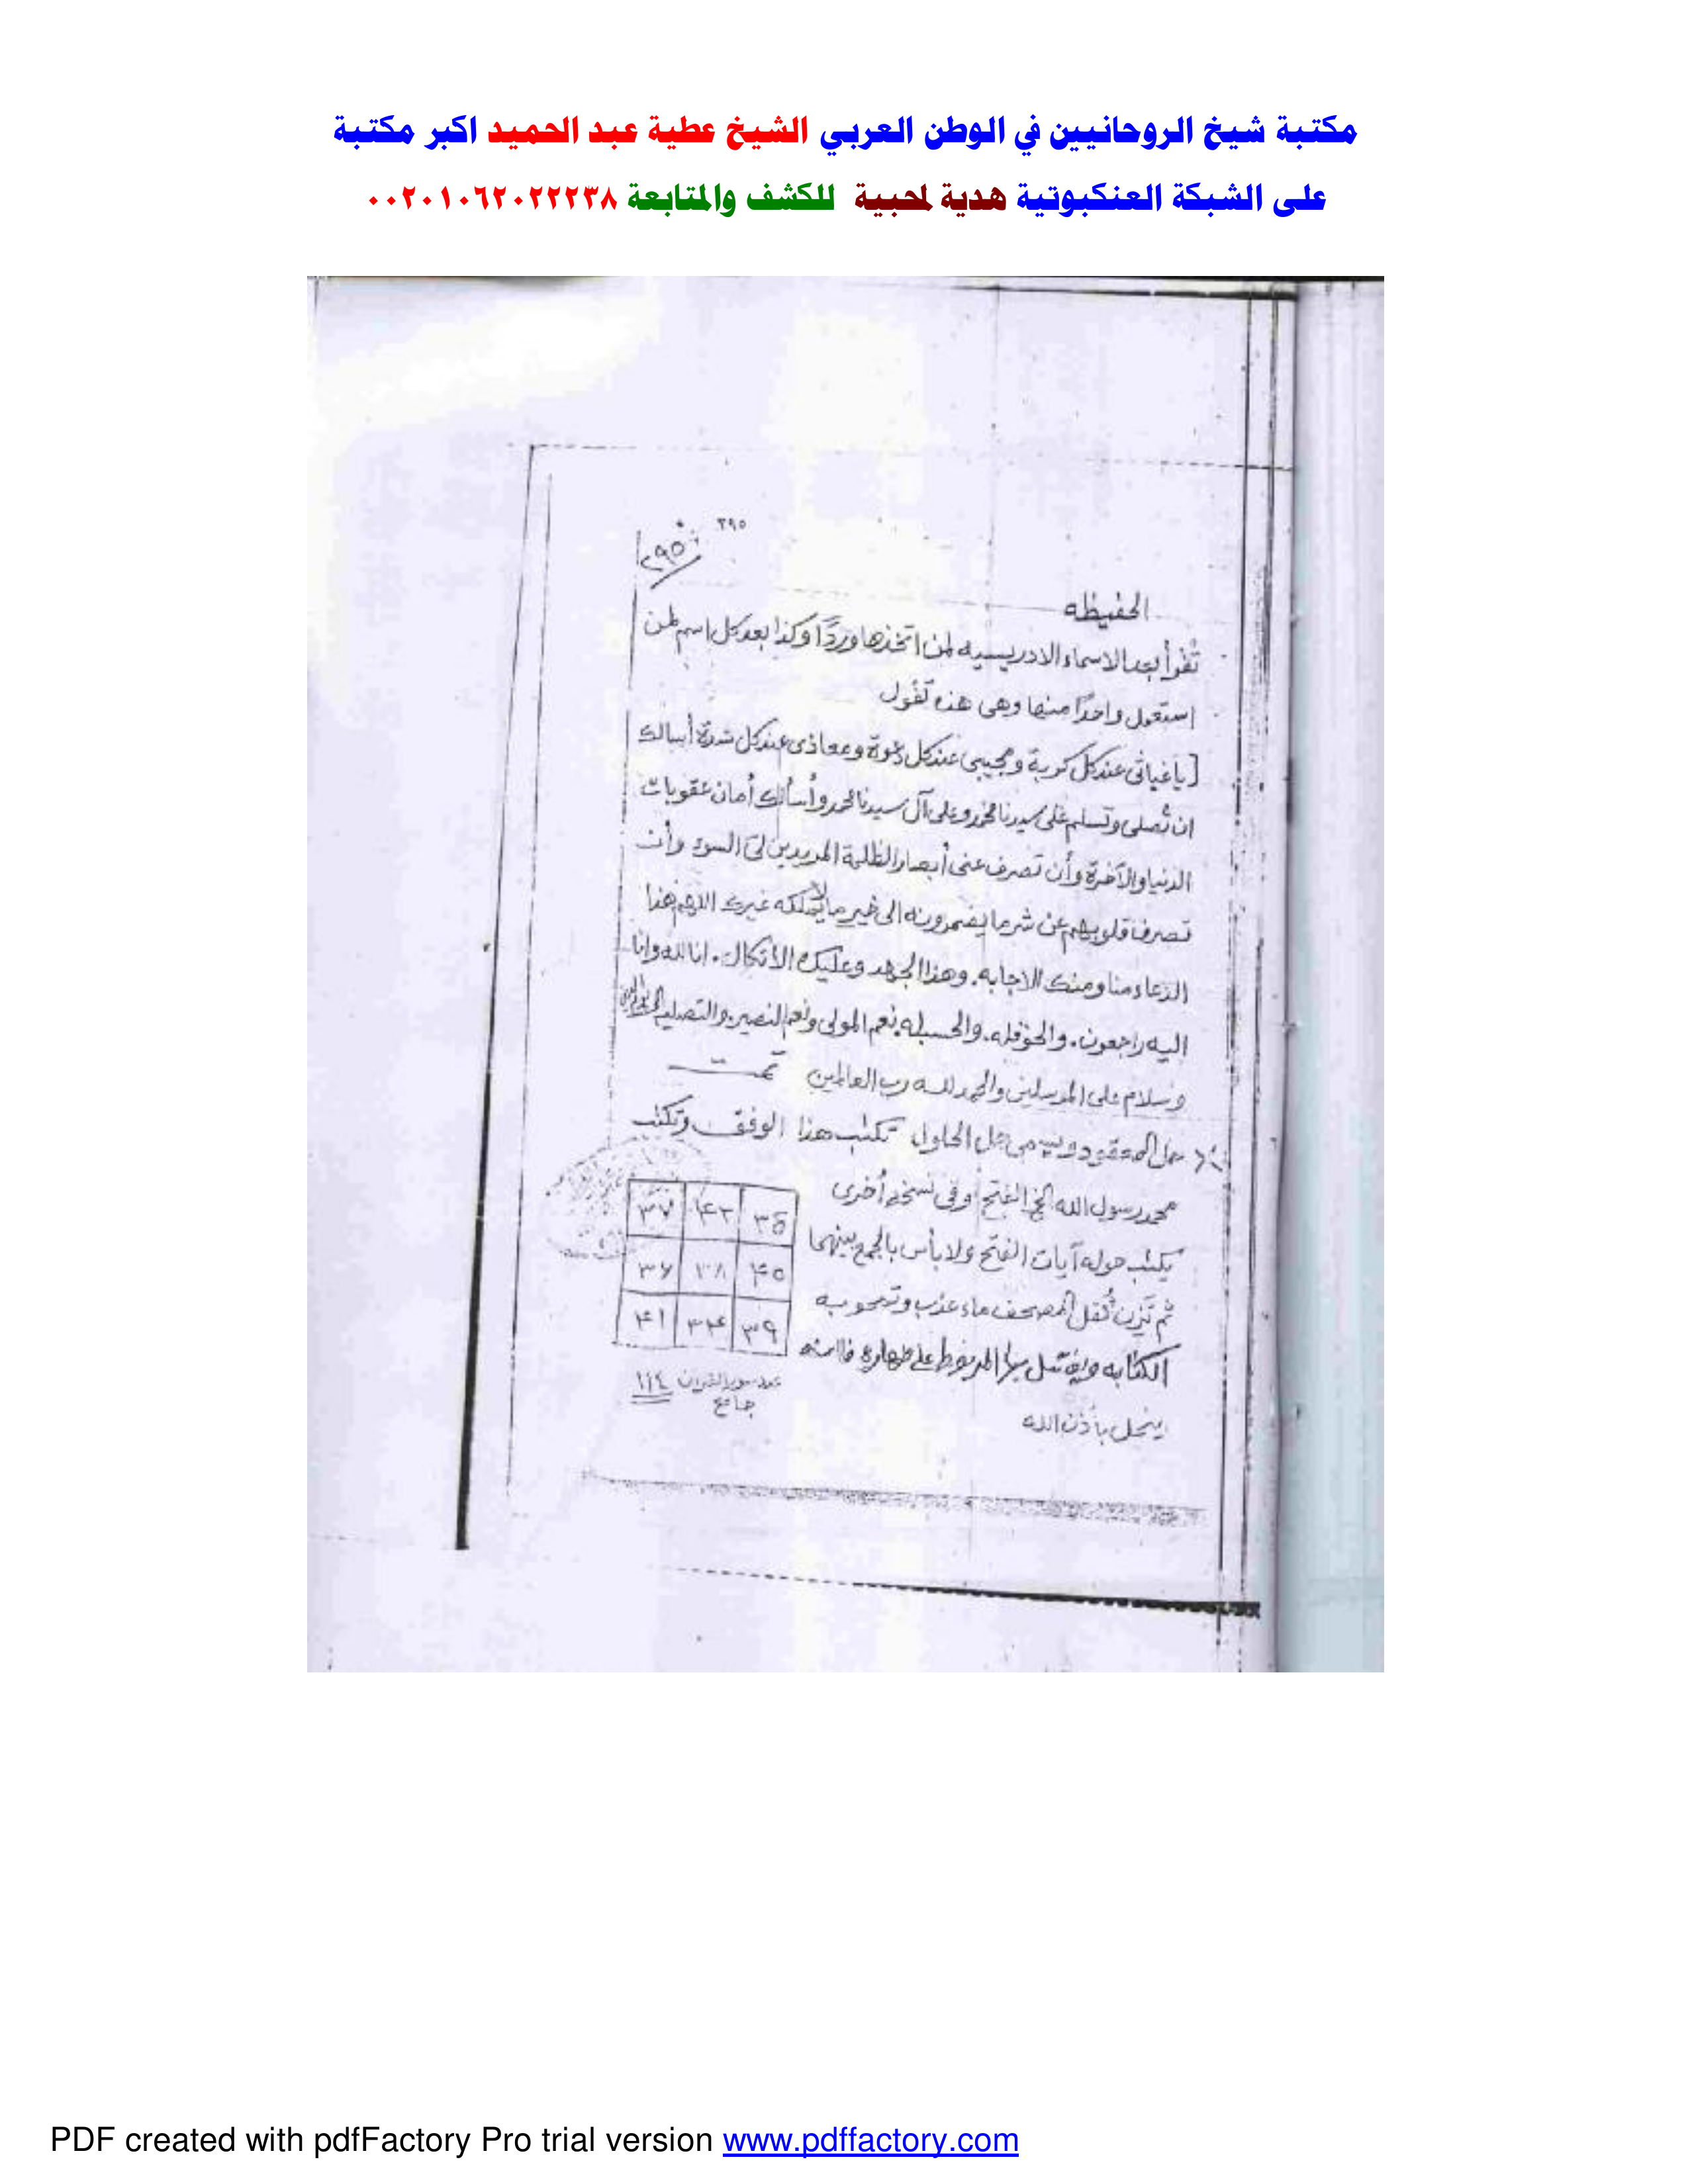 مكتبة شيخ الروحانيين في الوطن العربي الشيخ عطية عبد الحميد اكبر مكتبة
على الشبكة العنكبوتية هدية لمحبية للكشف والمتابعة ٠٠٢٠١٠٦٢٠٢٢٢٣٨
٢٩٥
٢٩٥
الحفيظه
تقرأ بعد الاسماء الادريسيه لمن اتخذها وردًا وكذا بعد كل اسم لمن
استعمل واحدًا منها وهى هذه تقول
[ياغياثى عند كل كربة ومجيبى عند كل دعوة ومعاذى عند كل شدة أسالك
ان تُصلى وتسلم على سيدنا محمد وعلى آل سيدنا محمد وأسألك أمان عقوبات
الدنيا والآخرة وأن تصرف عنى أبصار الظلمة المريدين لى السوء وأن
تصرف قلوبهم عن شر ما يضمرونه الى خير ما لا يملكه غيرك اللهم هذا
الدعاء منا ومنك الاجابه. وهذا الجهد وعليك الاتكال. انا لله وانا
اليه راجعون. والحوقله. والحسبله. نعم المولى ونعم النصير. والتصليه
وسلام على المرسلين والحمد لله رب العالمين تمت
حل المعقود من حل الحلول تكتب هذا الوفق وتكتب
محمد رسول الله الخ الفتح وفى نسخه أخرى
يكتب حوله آيات الفتح ولا بأس بالجمع بينهما
ثم تزن ثقل المصحف ماء عذب وتمحو به
الكتابه ويغتسل بها المربوط على طهاره فانه
ينحل بأذن الله
٣٥ ٤٢ ٣٧
٤٠ ٣٨ ٣٦
٣٩ ٣٤ ٤١
عدد سور القران ١١٤
جامع
PDF created with pdfFactory Pro trial version www.pdffactory.com